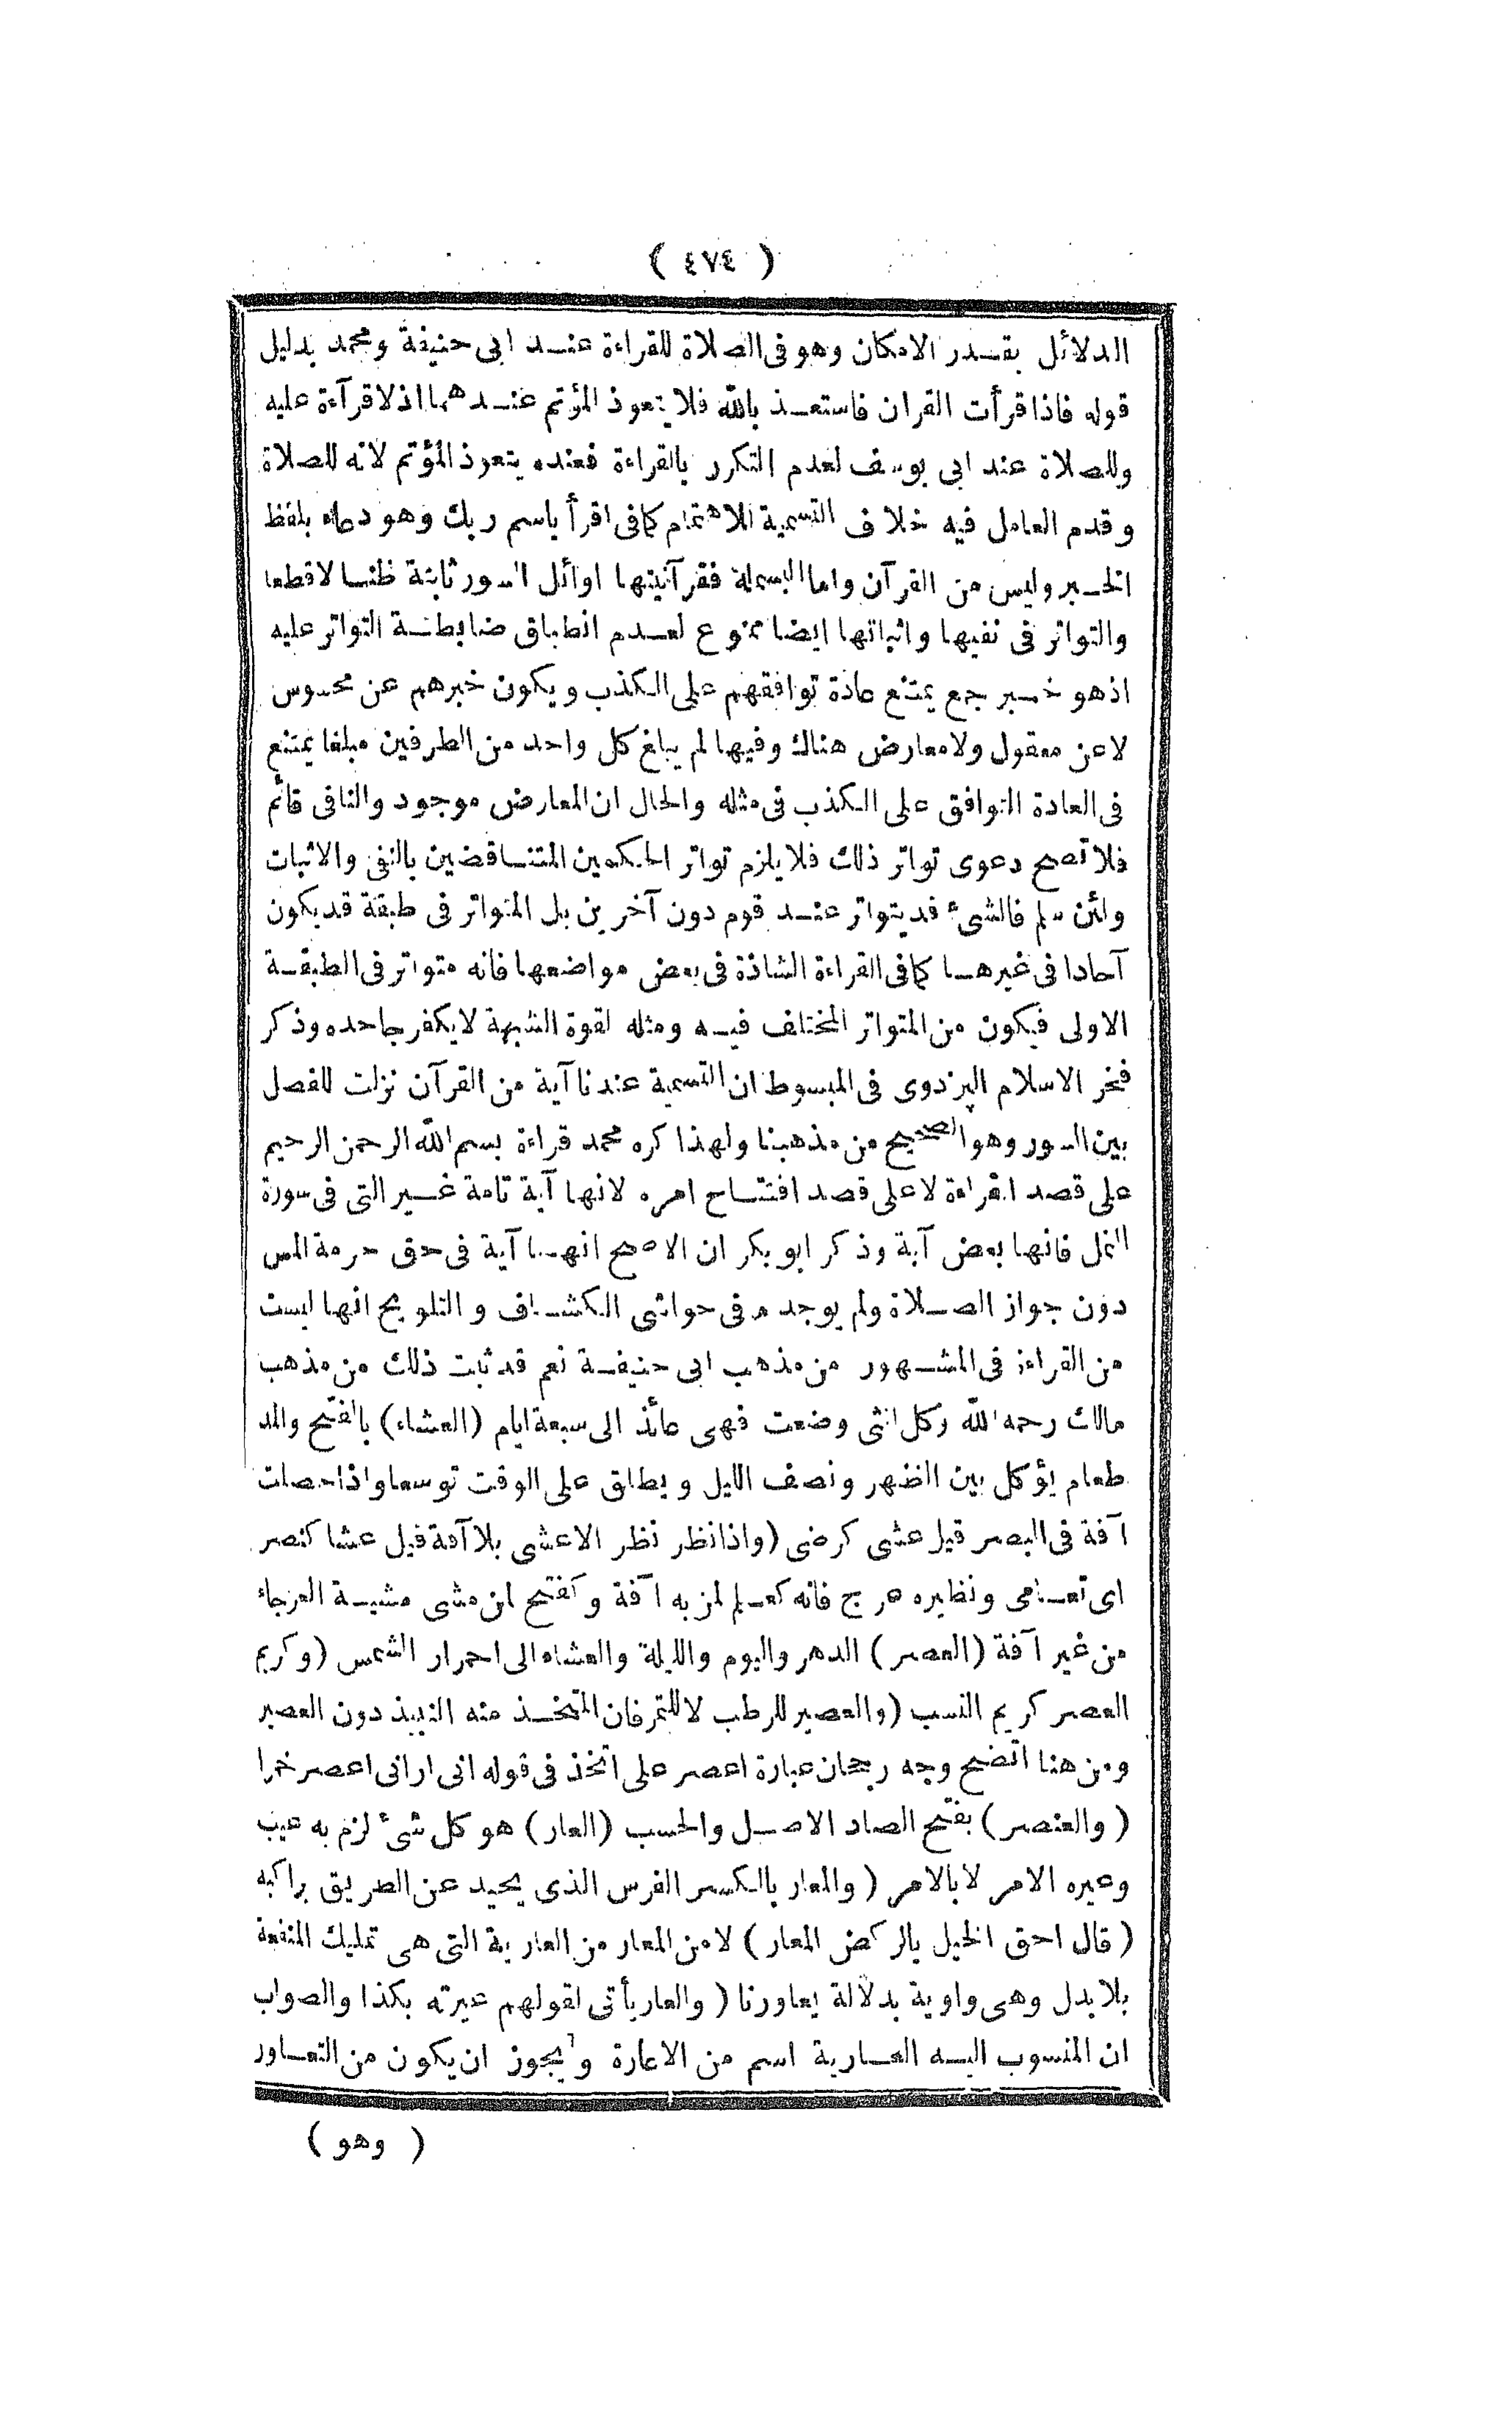 ( ٤٧٤ )
الدلائل بقدر الامكان وهو فى الصلاة للقراءة عند ابى حنيفة ومحمد بدليل
قوله فاذا قرأت القران فاستعذ بالله فلا يتعوذ المؤتم عندهما اذ لا قرآءة عليه
وللصلاة عند ابى يوسف لعدم التكرر بالقراءة فعنده يتعوذ المؤتم لانه للصلاة
وقدم العامل فيه خلاف التسمية للاهتمام كما فى اقرأ باسم ربك وهو دعاء بلفظ
الخبر وليس من القرآن واما البسملة فقرآنيتها اوائل السور ثابتة ظنا لا قطعا
والتواتر فى نفيها واثباتها ايضا ممنوع لعدم انطباق ضابطة التواتر عليه
اذ هو خبر جمع يمتنع عادة توافقهم على الكذب ويكون خبرهم عن محسوس
لا عن معقول ولا معارض هناك وفيها لم يبلغ كل واحد من الطرفين مبلغا يمتنع
فى العادة التوافق على الكذب فى مثله والحال ان المعارض موجود والنافى قائم
فلا تصح دعوى تواتر ذلك فلا يلزم تواتر الحكمين المتناقضين بالنفى والاثبات
ولئن سلم فالشئ قد يتواتر عند قوم دون آخرين بل المتواتر فى طبقة قد يكون
آحادا فى غيرها كما فى القراءة الشاذة فى بعض مواضعها فانه متواتر فى الطبقة
الاولى فيكون من المتواتر المختلف فيه ومثله لقوة الشبهة لا يكفر جاحده وذكر
فخر الاسلام البزدوى فى المبسوط ان التسمية عندنا آية من القرآن نزلت للفصل
بين السور وهو الصحيح من مذهبنا ولهذا كره محمد قراءة بسم الله الرحمن الرحيم
على قصد القراءة لا على قصد افتتاح امره لانها آية تامة غير التى فى سورة
النمل فانها بعض آية وذكر ابو بكر ان الاصح انها آية فى حق حرمة المس
دون جواز الصلاة ولم يوجد م فى حواشى الكشاف والتلويح انها ليست
من القراءة فى المشهور من مذهب ابى حنيفة نعم قد ثبت ذلك من مذهب
مالك رحمه الله وكل انثى وضعت فهى عائذ الى سبعة ايام (العشاء) بالفتح والمد
طعام يؤكل بين الظهر ونصف الليل ويطلق على الوقت توسعا واذا حصلت
آفة فى البصر قيل عشى كرضى (واذا نظر نظر الاعشى بلا آفة قيل عشا كنصر
اى تعامى ونظيره عرج فانه كعلم لمن به آفة وكفتح لمن مشى مشية العرجاء
من غير آفة (العصر) الدهر واليوم والليلة والعشاء الى احمرار الشمس (وكريم
العصر كريم النسب (والعصير للرطب لا للتمر فان المتخذ منه النبيذ دون العصير
ومن هنا اتضح وجه رجحان عبارة اعصر على اتخذ فى قوله انى ارانى اعصر خمرا
(والعنصر) بفتح الصاد الاصل والحسب (العار) هو كل شئ لزم به عيب
وعيره الامر لا بالامر (والمعار بالكسر الفرس الذى يحيد عن الطريق براكبه
(قال احق الخيل بالركض المعار) لا من المعار من العارية التى هى تمليك المنفعة
بلا بدل وهى واوية بدلالة يعاورنا (والعار يأتى لقولهم عيرته بكذا والصواب
ان المنسوب اليه العارية اسم من الاعارة ويجوز ان يكون من التعاور
( وهو )